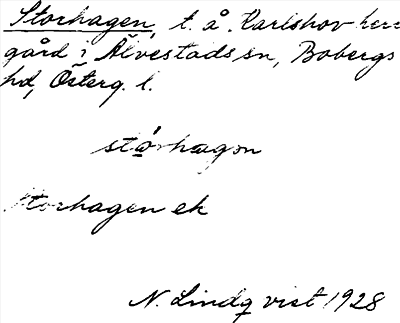 Storhagen, t. å. Karlshov herr
gård i Älvestads sn, Bobergs
hd, Österg. l.
stórhagən
Storhagen ek
N. Lindqvist 1928